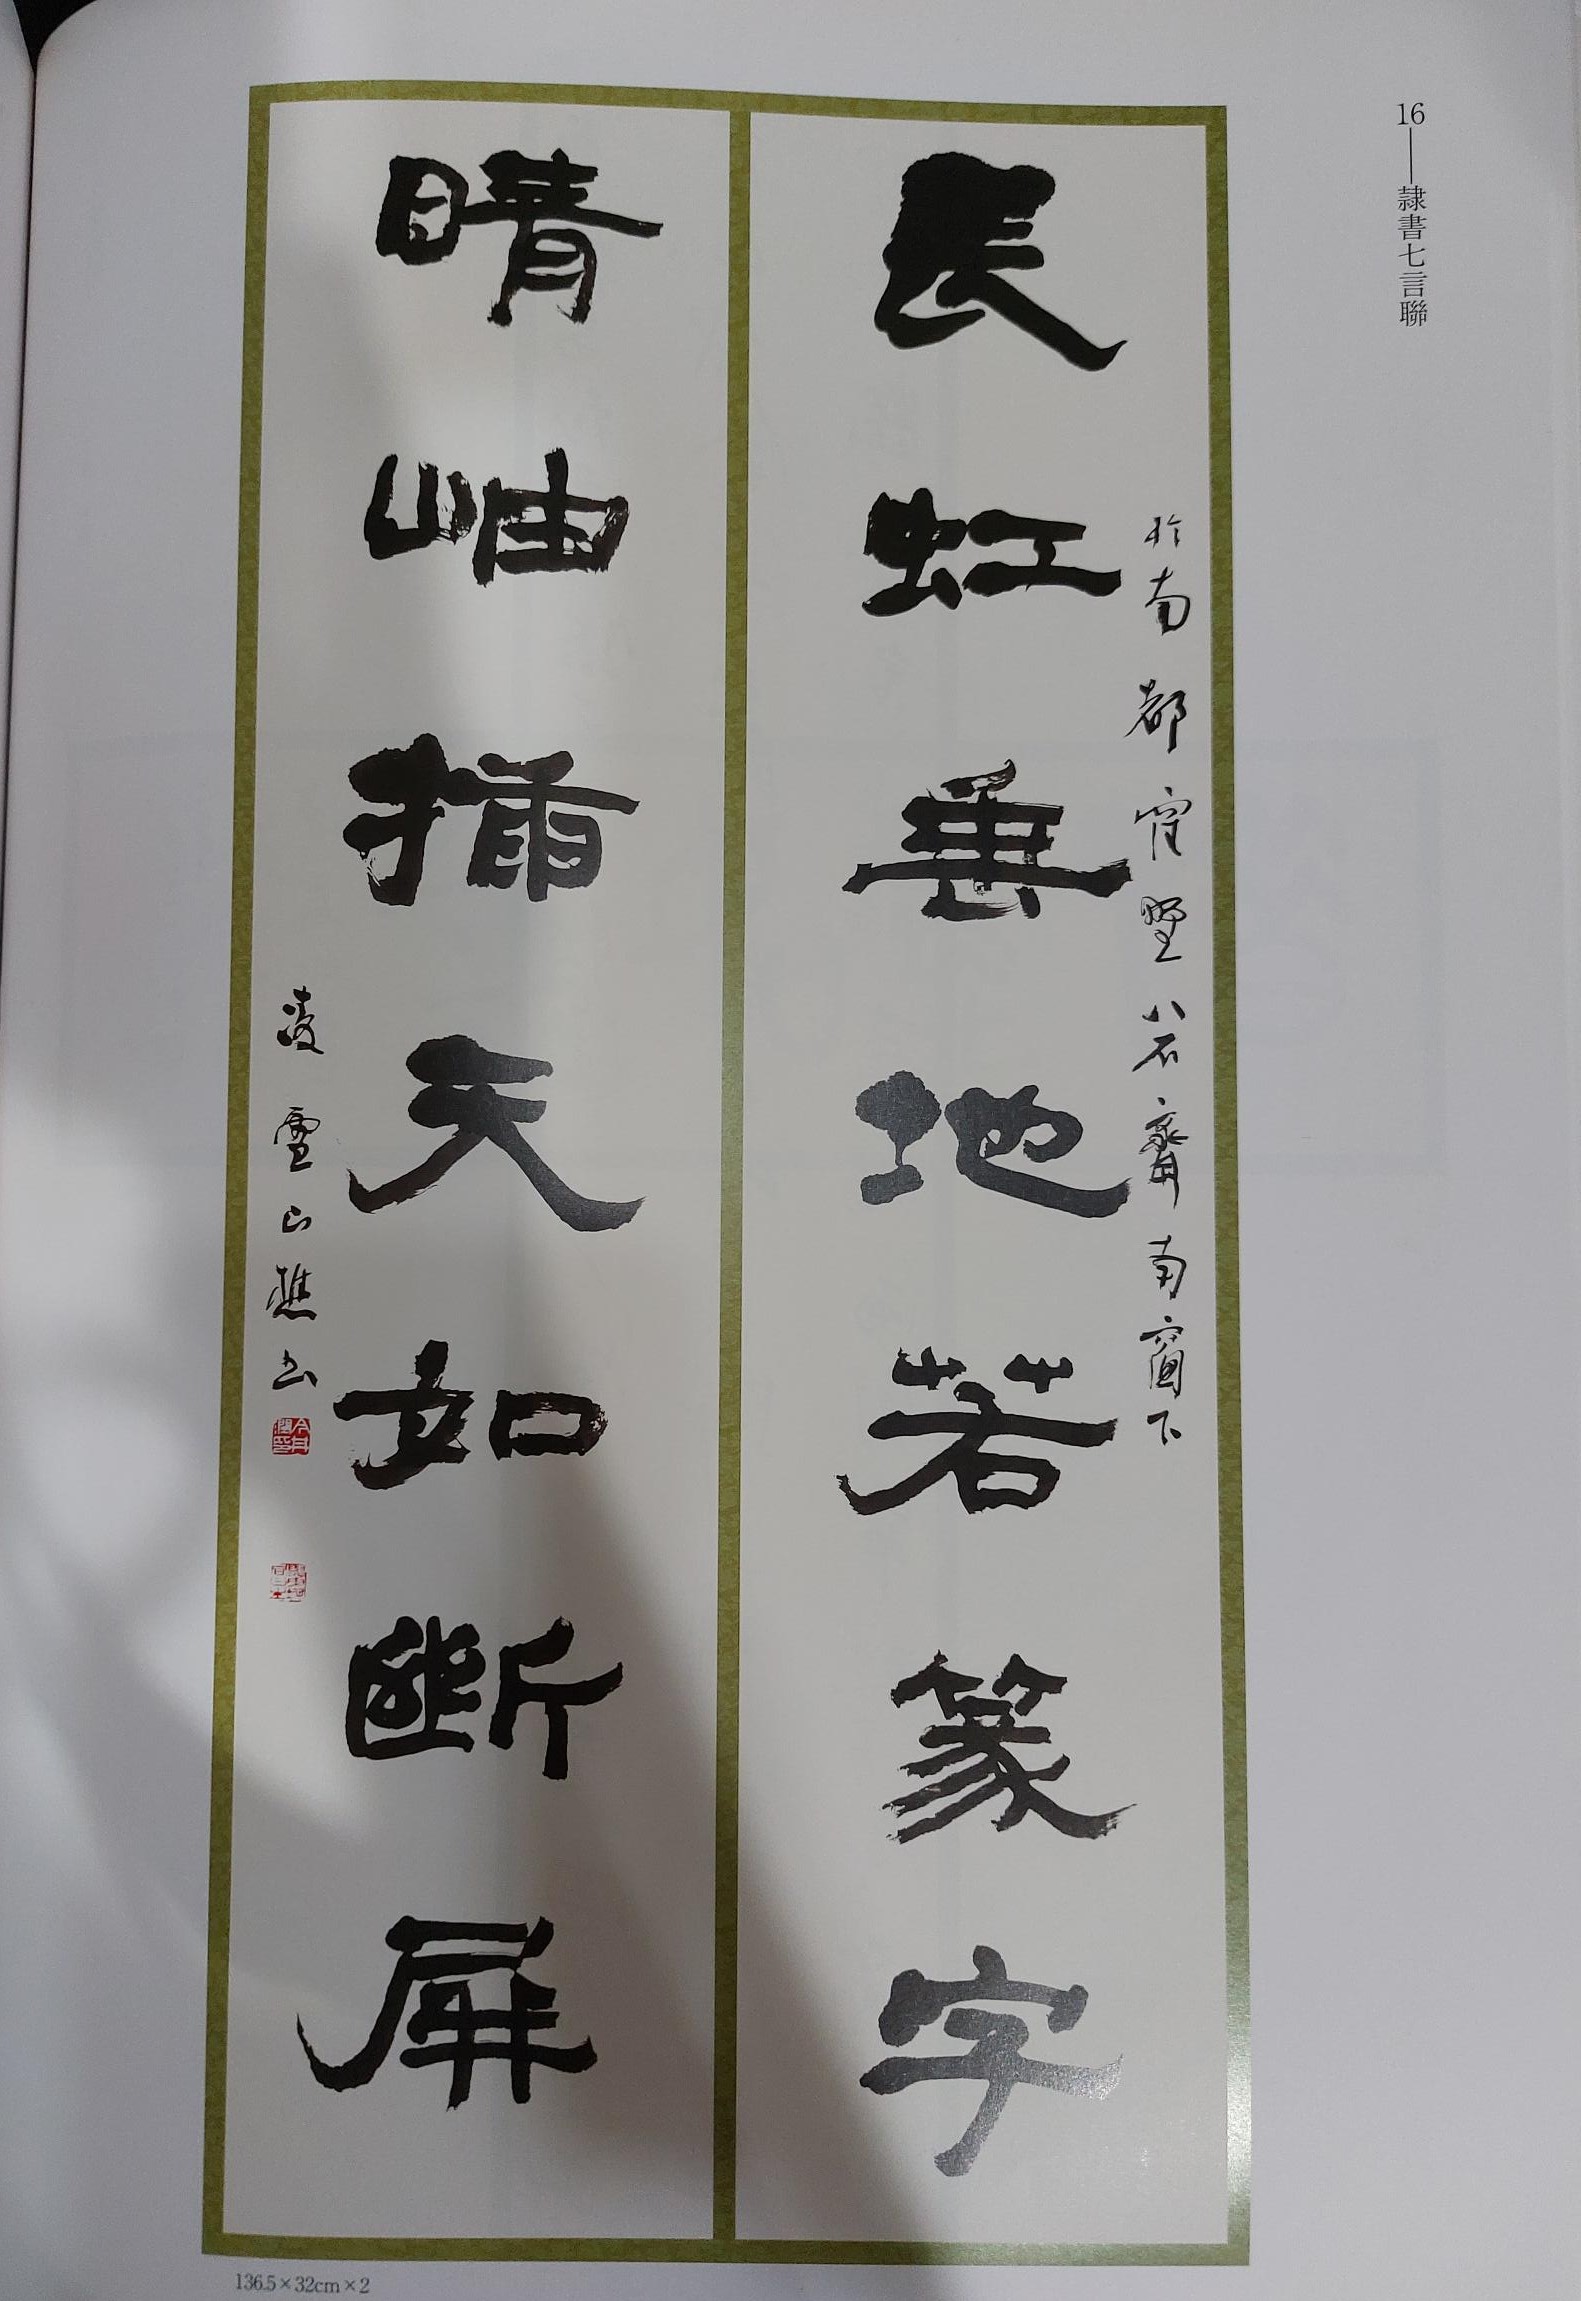 16—隸書七言聯
於南都官墅八石齋南窗下
長虹垂地若篆字
晴岫插天如斷屏
凌雲山樵書
136.5×32cm×2